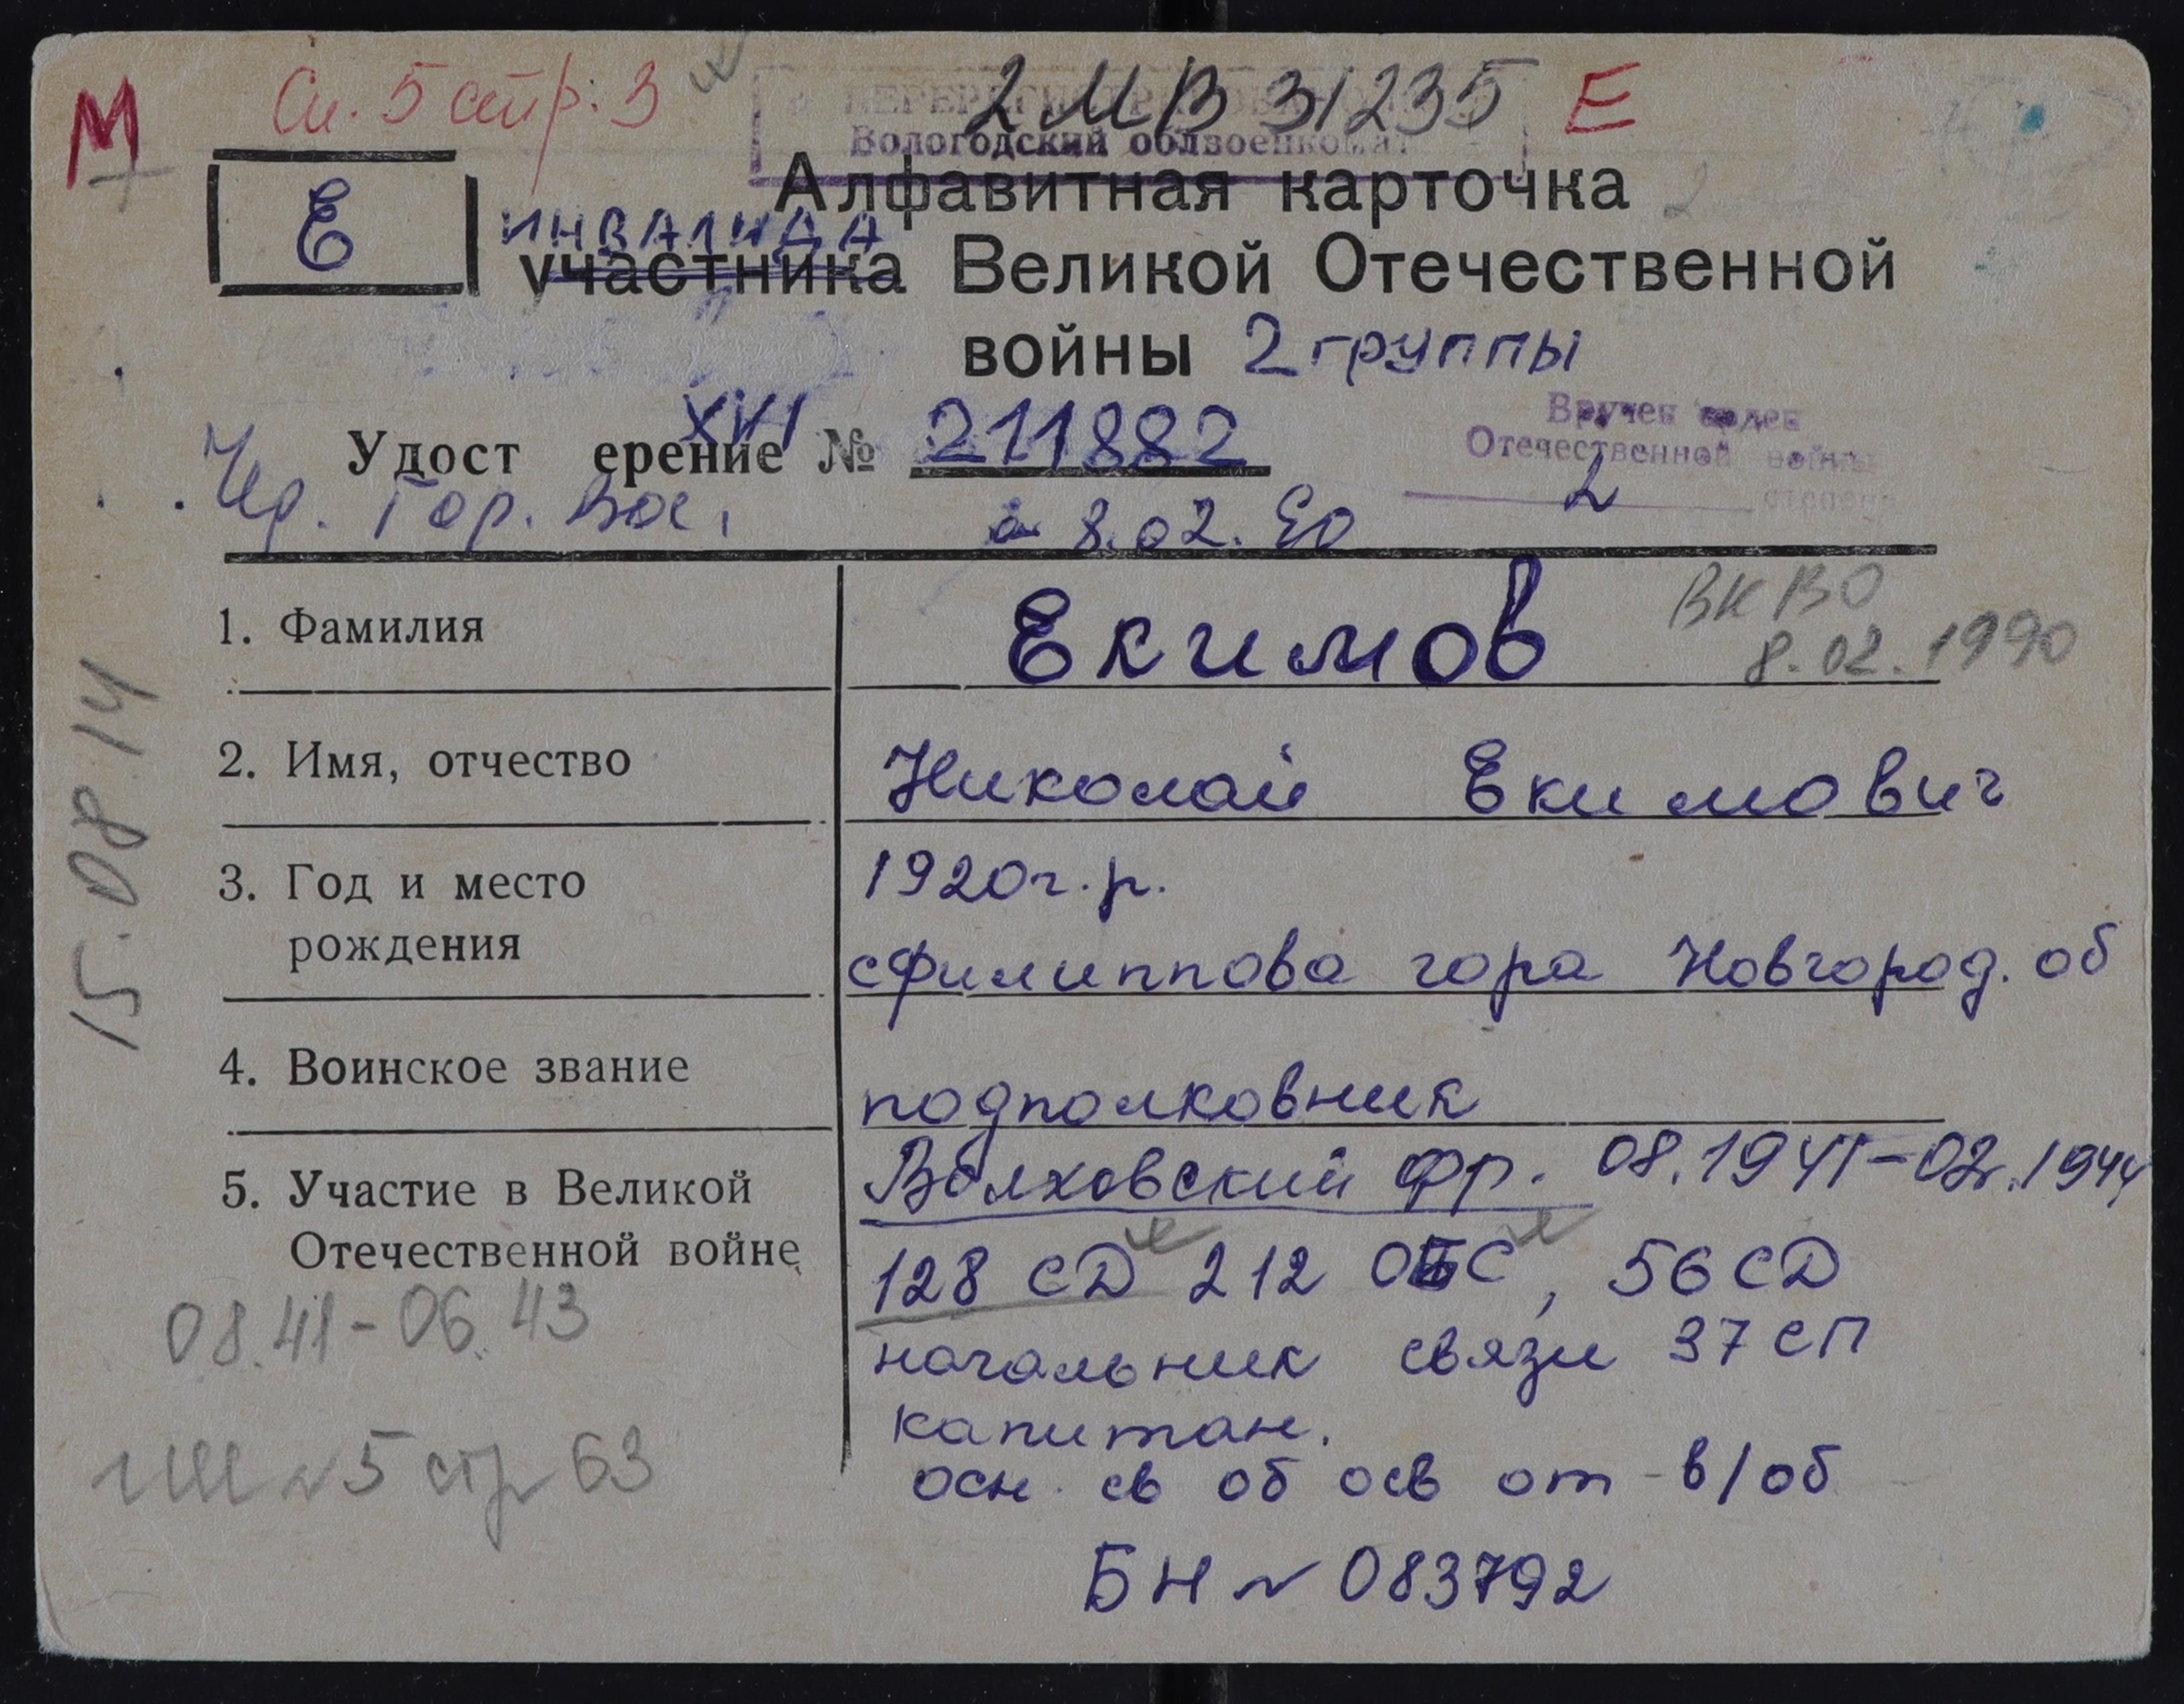 М
Сп. 5 стр. 3
2 МВ 31235
Е
ПЕРЕРЕГИСТРИРОВАН
Вологодский облвоенкомат
Алфавитная карточка
Е
инвалида
участника Великой Отечественной
войны 2 группы
Вручен орден
Отечественной войны
2 степени
XVI
Удост ерение № 211882
Чер. Гор. Вое.
8.02.90
1. Фамилия
Екимов
ВК ВО
8.02.1990
2. Имя, отчество
Николай Екимович
3. Год и место
рождения
1920 г.р.
с филиппова гора Новгород. об
15.08.14
4. Воинское звание
подполковник
5. Участие в Великой
Отечественной войне
Волховский фр. 08.1941-02.1944
128 СД 212 ОБС, 56 СД
08.41-06.43
начальник связи 37 СП
капитан.
5 стр 63
осн. св об осв от в/об
БН № 083792